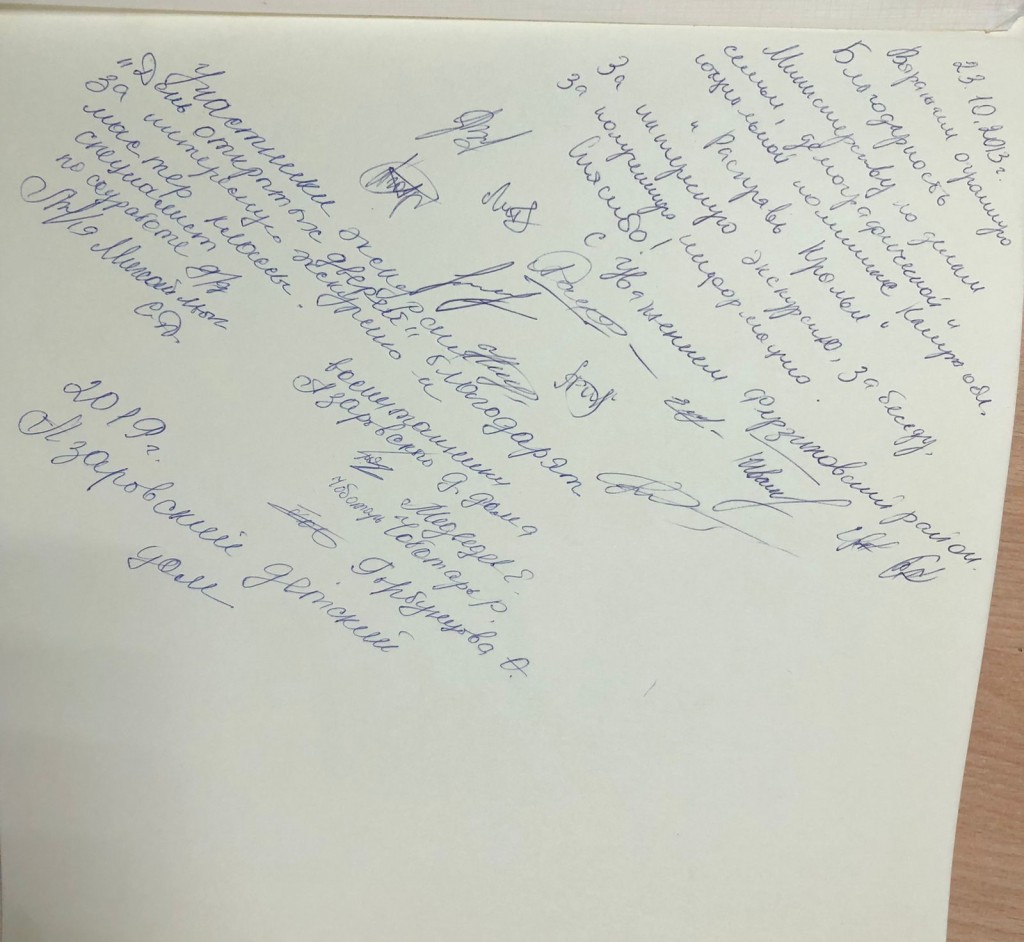 23.10.2013г.
Выражаем огромную
Благодарность
Министерству по делам
семьи, демографической и
социальной политике Калуж обл.
и "Расправь Крылья"
За интересную экскурсию, за беседу,
за полученную информацию!
Спасибо!
с уважением Дзержинский район.
Участники экспе
"День открытых дверей" благодарят
за интересную экскурсию и
мастер классы.
специалист
по соц.работе
Михайлова
С.А.
воспитанники
Азаровского д. дома
Медведев Е.
Чоботарь Чоботарь Р.
Горбунцова О.
2019г.
Азаровский детский
дом